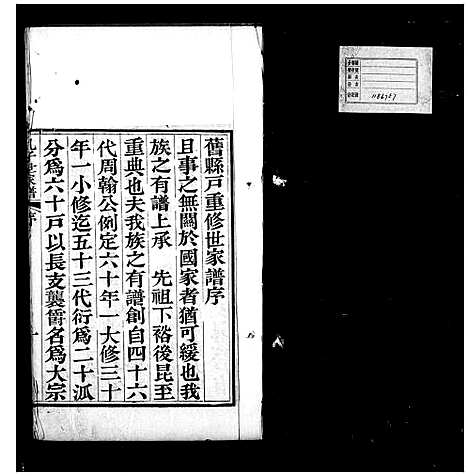 舊縣戸重修世家譜序
且事之無關於國家者猶可緩也我
族之有譜上承　先祖下裕後昆至
重典也夫我族之有譜創自四十六
代周翰公例定六十年一大修三十
年一小修迄五十三代衍爲二十派
分爲六十戸以長支襲爵名爲大宗